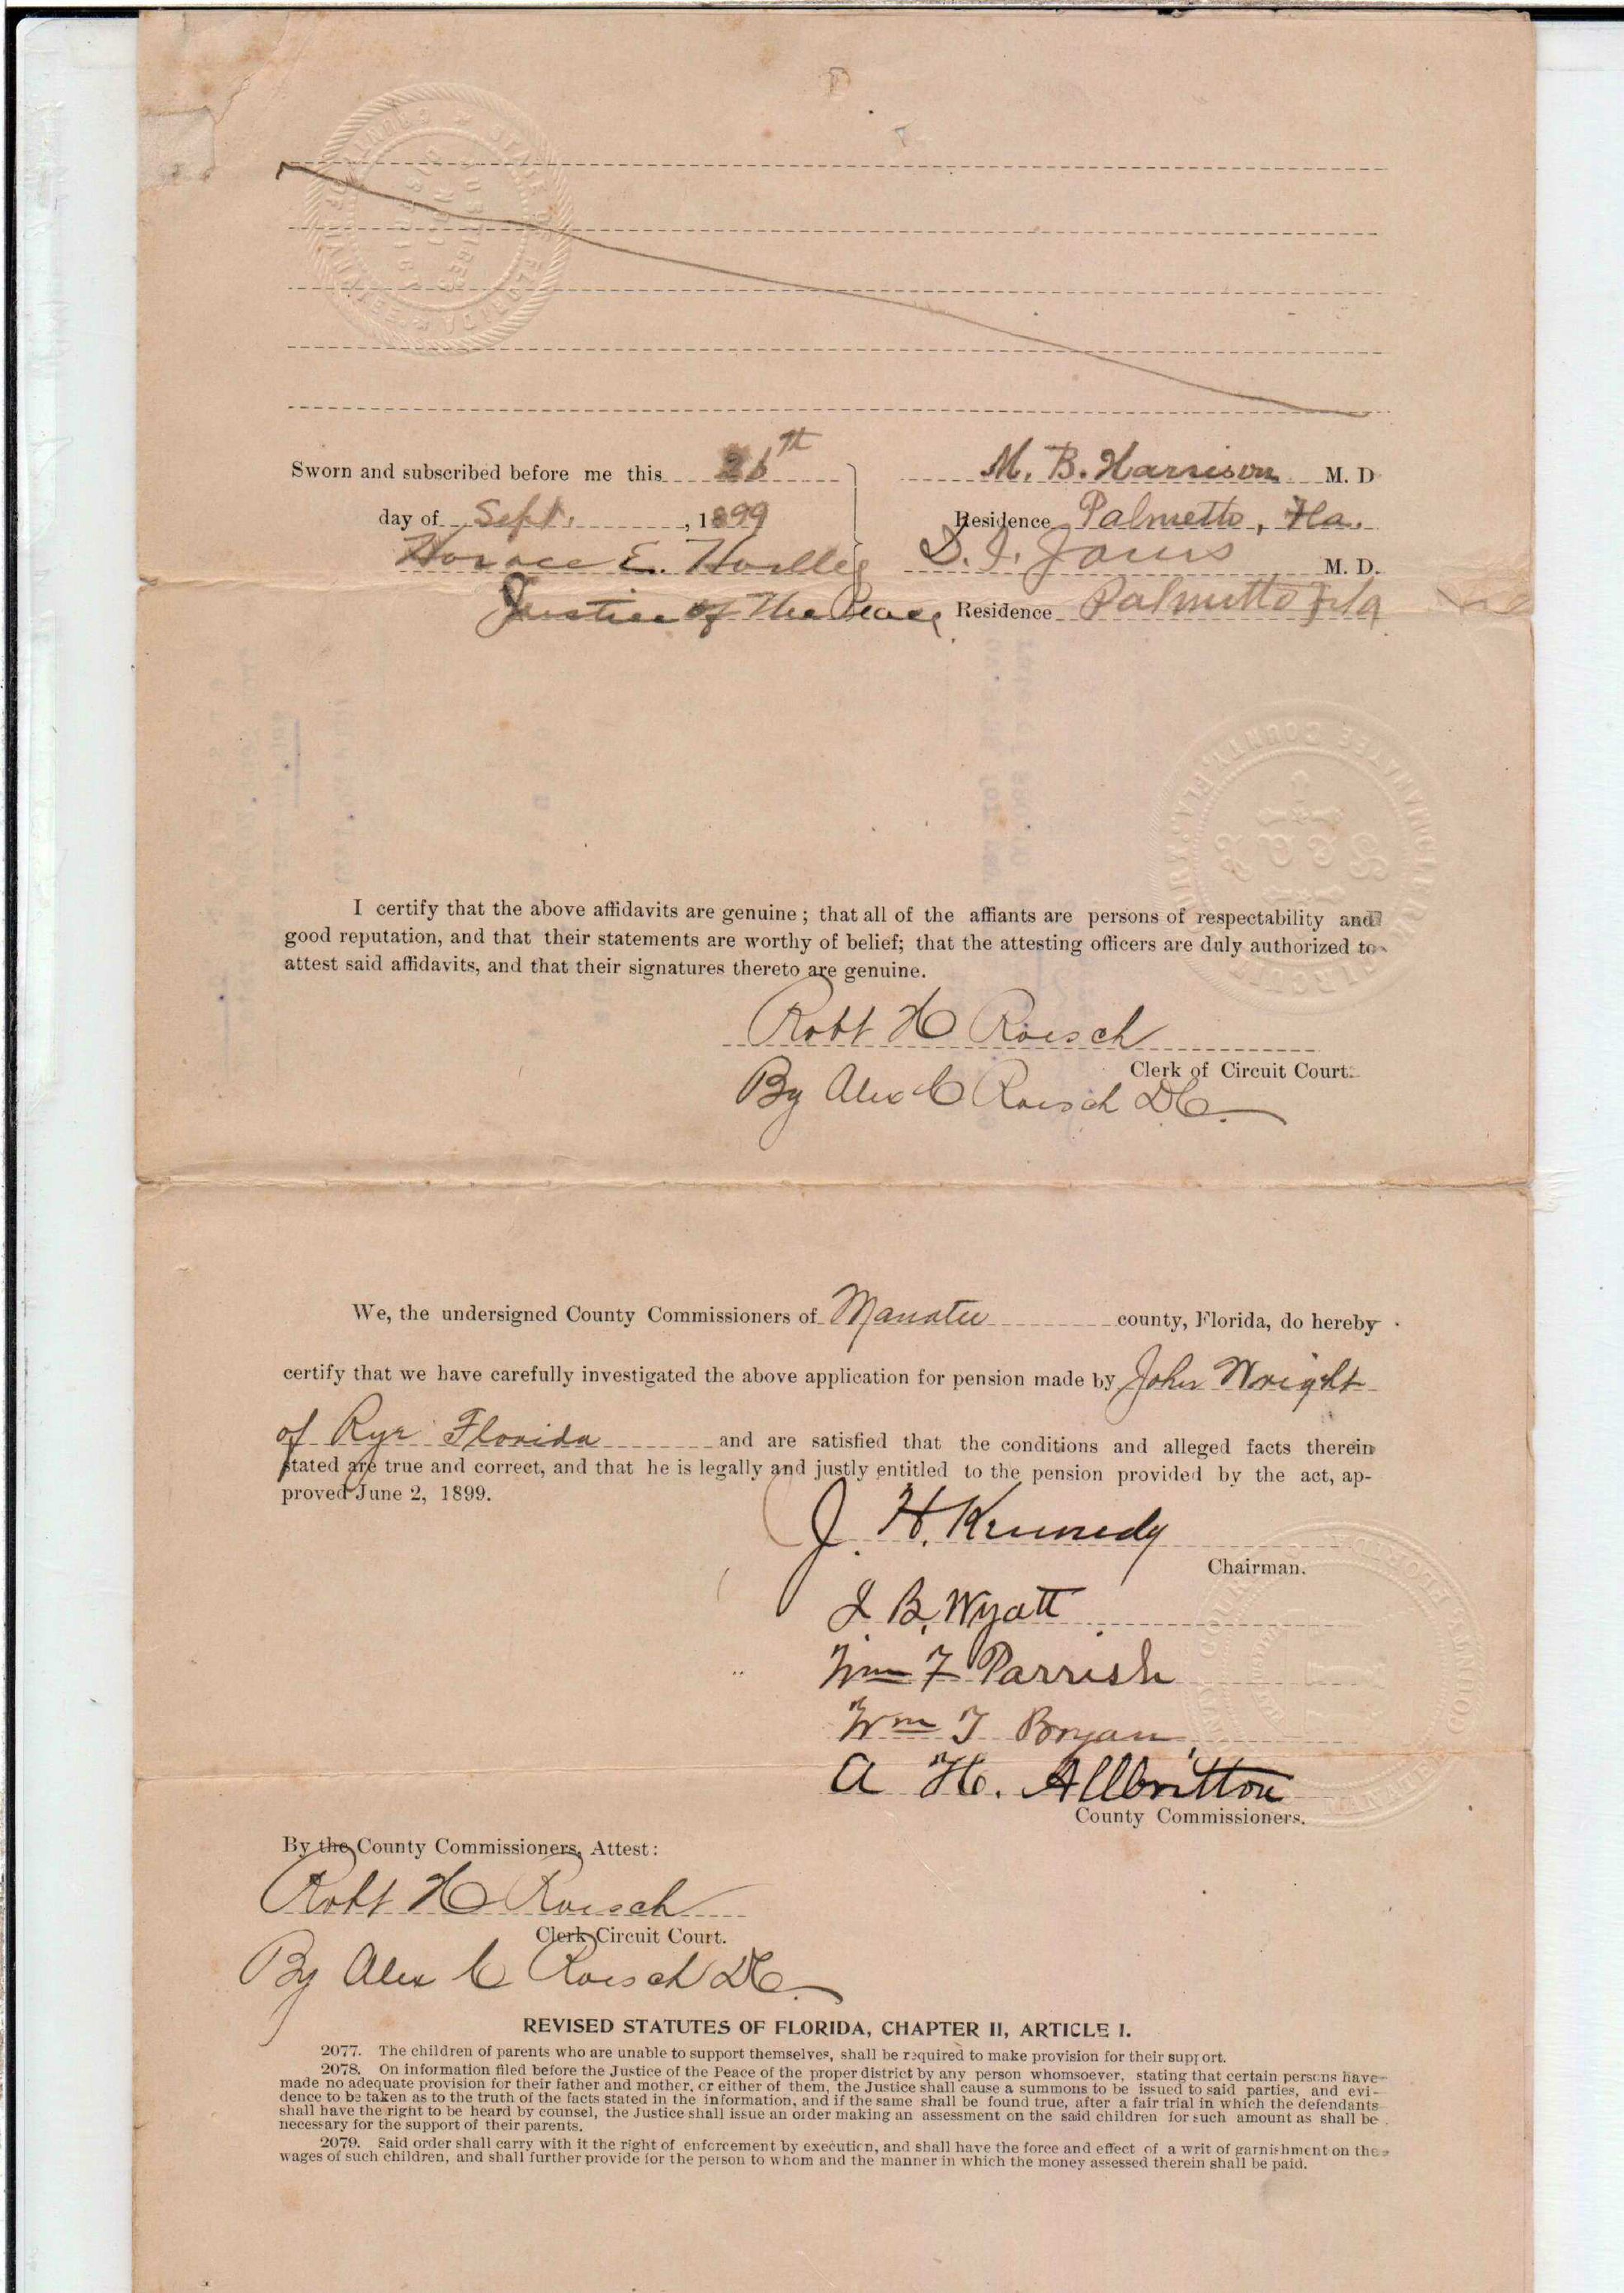 Sworn and subscribed before me this 26th
day of Sept. , 1899
Horace E.
Justice of the Peace
M. B. Harrison M. D
Residence Palmetto, Fla.
M. D.
Residence Palmetto Fla
MANATEE COUNTY. FLA.
I certify that the above affidavits are genuine; that all of the affiants are persons of respectability and
good reputation, and that their statements are worthy of belief; that the attesting officers are duly authorized to
attest said affidavits, and that their signatures thereto are genuine.
Robt H Roesch
Clerk of Circuit Court.
By Alex C Roesch DC.
We, the undersigned County Commissioners of Manatee county, Florida, do hereby
certify that we have carefully investigated the above application for pension made by John Wright
of Rye Florida and are satisfied that the conditions and alleged facts therein
stated are true and correct, and that he is legally and justly entitled to the pension provided by the act, ap-
proved June 2, 1899.
J. H. Kennedy
Chairman.
J. B. Wyatt
Wm F Parrish
Wm T Bryan
A H. Allbritton
County Commissioners.
By the County Commissioners, Attest:
Robt H Roesch
Clerk Circuit Court.
By Alex C Roesch DC.
REVISED STATUTES OF FLORIDA, CHAPTER II, ARTICLE I.
2077. The children of parents who are unable to support themselves, shall be required to make provision for their support.
2078. On information filed before the Justice of the Peace of the proper district by any person whomsoever, stating that certain persons have
made no adequate provision for their father and mother, or either of them, the Justice shall cause a summons to be issued to said parties, and evi-
dence to be taken as to the truth of the facts stated in the information, and if the same shall be found true, after a fair trial in which the defendants
shall have the right to be heard by counsel, the Justice shall issue an order making an assessment on the said children for such amount as shall be
necessary for the support of their parents.
2079. Said order shall carry with it the right of enforcement by execution, and shall have the force and effect of a writ of garnishment on the
wages of such children, and shall further provide for the person to whom and the manner in which the money assessed therein shall be paid.